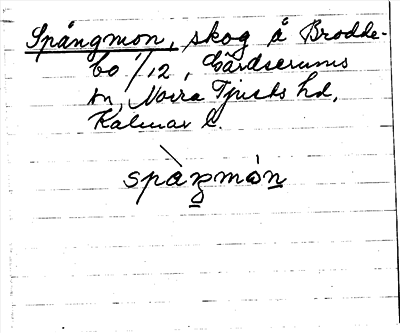 Spångmon, skog å Brodde-
bo 1/12, Gärdserums
sn, Norra Tjusts hd,
Kalmar l.
spàŋmón